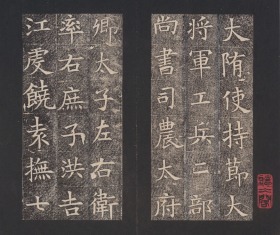 大隋使持節大
將軍工兵二部
尚書司農太府
卿太子左右衛
率右庶子洪吉
江虔饒袁撫七